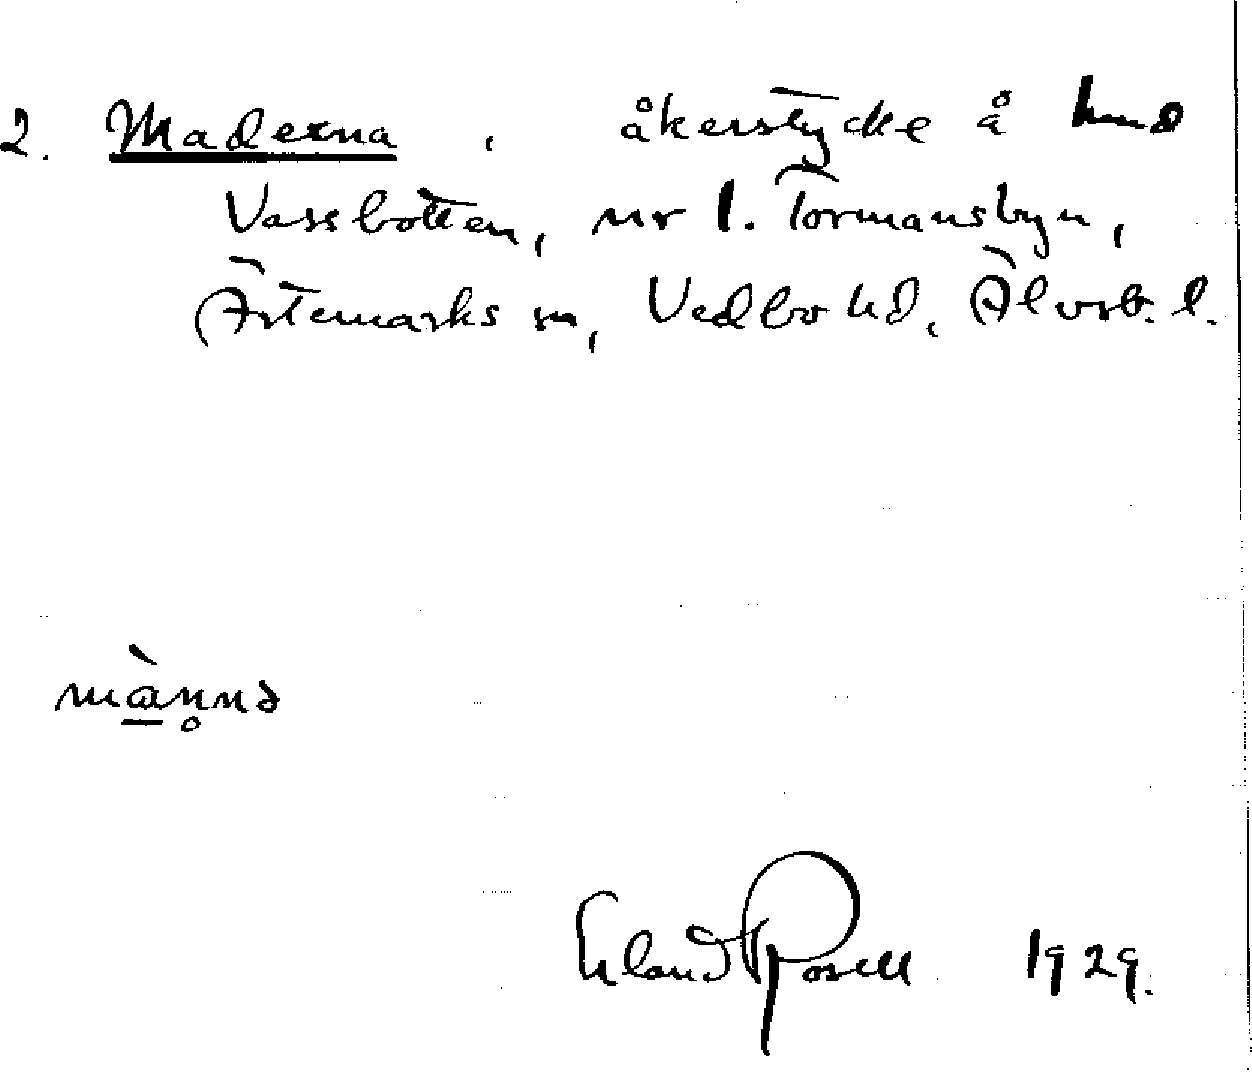 2. Maderna, åkerstycke å hmd
Vassbotten, nr 1. Tormansbyn,
Ärtemarks sn, Vedbo hd, Älvsb. l.
mànna
Erland Rosell 1929.